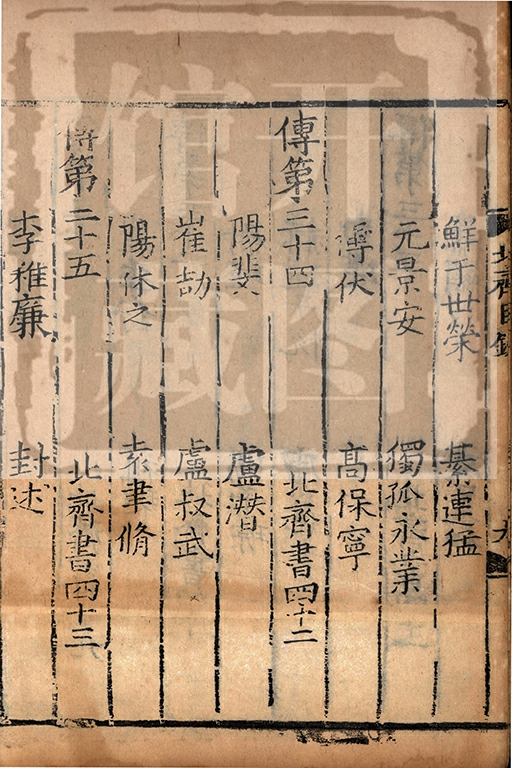 北齊目錄 九
鮮于世榮 綦連猛
元景安 獨孤永業
傅伏 高保寧
傳第三十四 北齊書四十二
陽斐 盧潛
崔劼 盧叔武
陽休之 袁聿脩
傳第二十五 北齊書四十三
李稚廉 封述
开图
馆藏